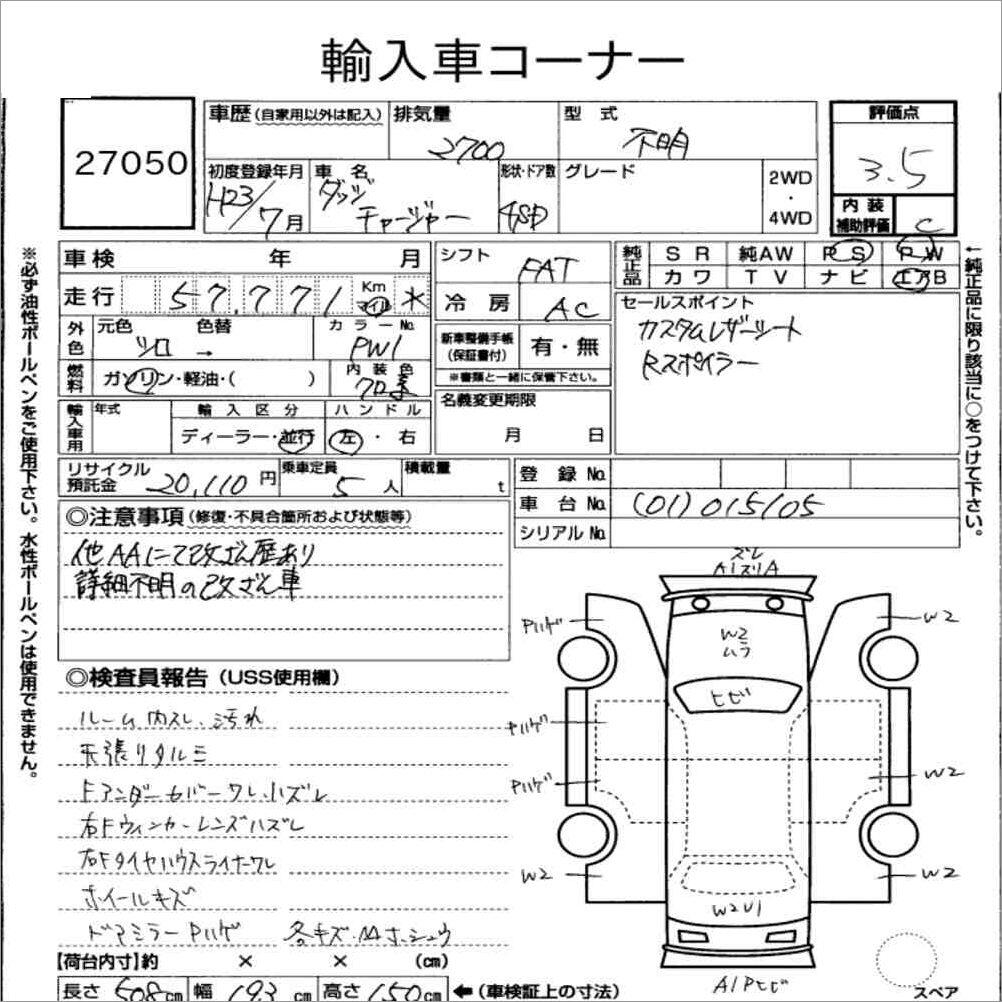 輸入車コーナー
27050
車歴(自家用以外は記入)
排気量
2700
型式
不明
評価点
3.5
初度登録年月
H23/7月
車名
ダッジ
チャージャー
形状・ドア数
4SD
グレード
2WD
・
4WD
内装
補助評価
C
車検 年 月
シフト
FAT
純正品
SR 純AW PS PW
カワ TV ナビ エアB
走行 57,771 Km マイル *
冷房
AC
セールスポイント
カスタムレザーシート
Rスポイラー
外色
元色 色替
シロ →
カラーNo.
PW1
新車整備手帳
(保証書付)
有・無
※書類と一緒に保管下さい。
燃料
ガソリン・軽油・( )
内装色
クロ系
名義変更期限
月 日
輸入車用
年式
輸入区分
ディーラー・並行
ハンドル
左・右
リサイクル
預託金
20,110円
乗車定員
5人
積載量
t
登録No.
車台No.
(01)015105
シリアルNo.
※必ず油性ボールペンをご使用下さい。水性ボールペンは使用できません。
←純正品に限り該当に○をつけて下さい。
◎注意事項(修復・不具合箇所および状態等)
他AAにて改ざん歴あり
詳細不明の改ざん車
◎検査員報告(USS使用欄)
ルーム内スレ、汚れ
天張りタルミ
Fアンダーカバーワレ、ハズレ
右Fウィンカーレンズハズレ
右Fタイヤハウスライナーワレ
ホイールキズ
ドアミラーPハゲ 各キズ・
ズレ
A1スリA
Pハゲ
W2
W2
ムラ
ヒビ
Pハゲ
W2
W2
W2
W2U1
A1Pヒビ
【荷台内寸】約 × × (cm)
長さ 508cm 幅 193cm 高さ 150cm ←(車検証上の寸法)
スペア